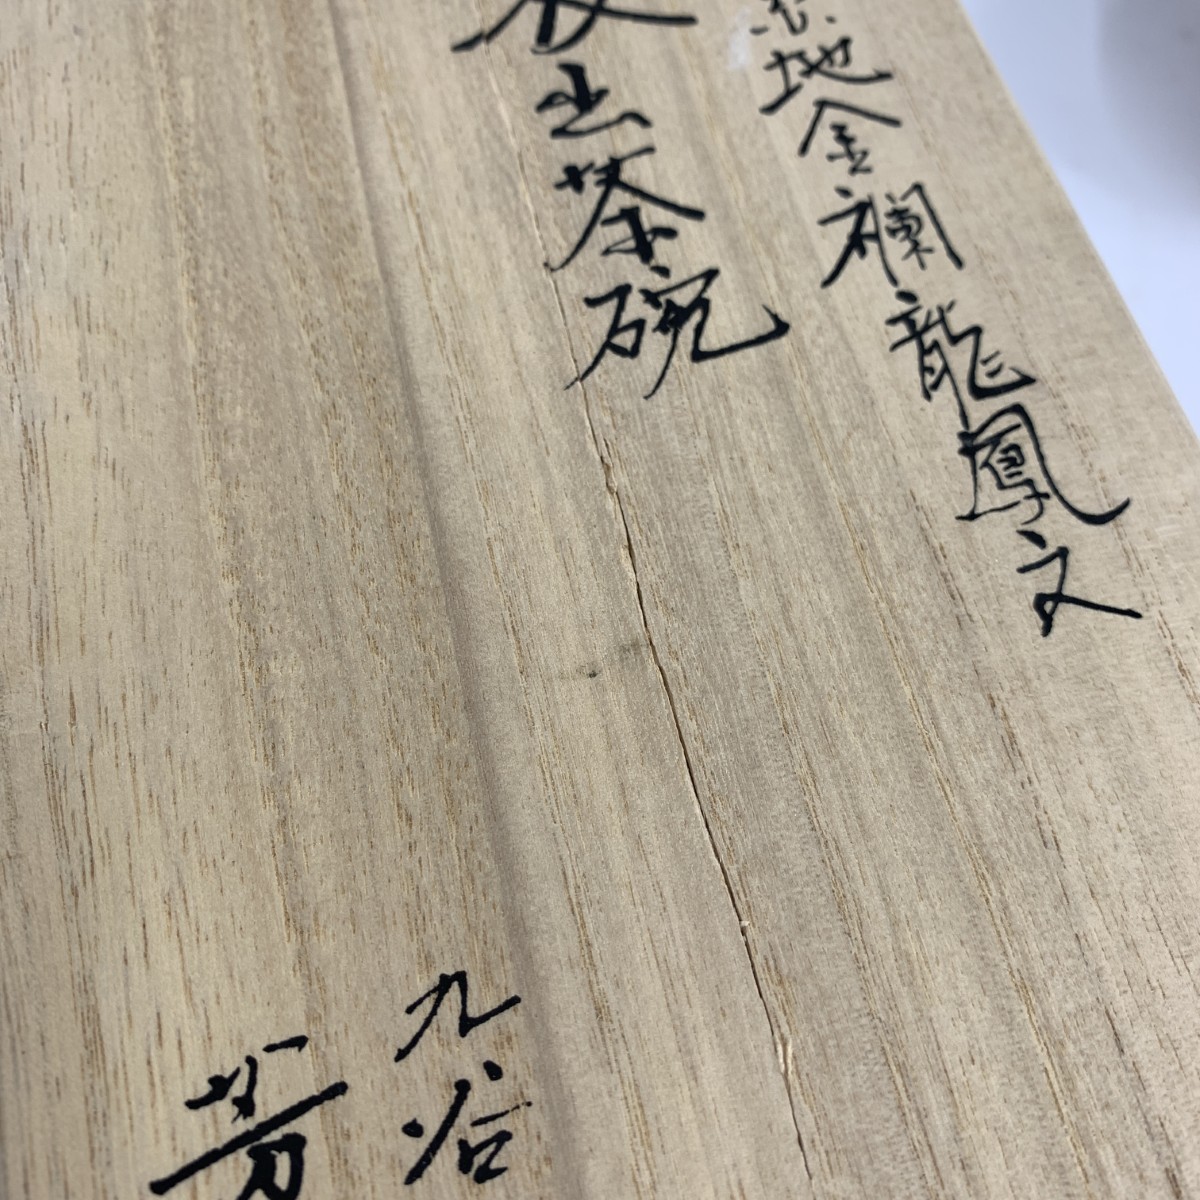 地金襴龍鳳文
茶碗
九谷
芳